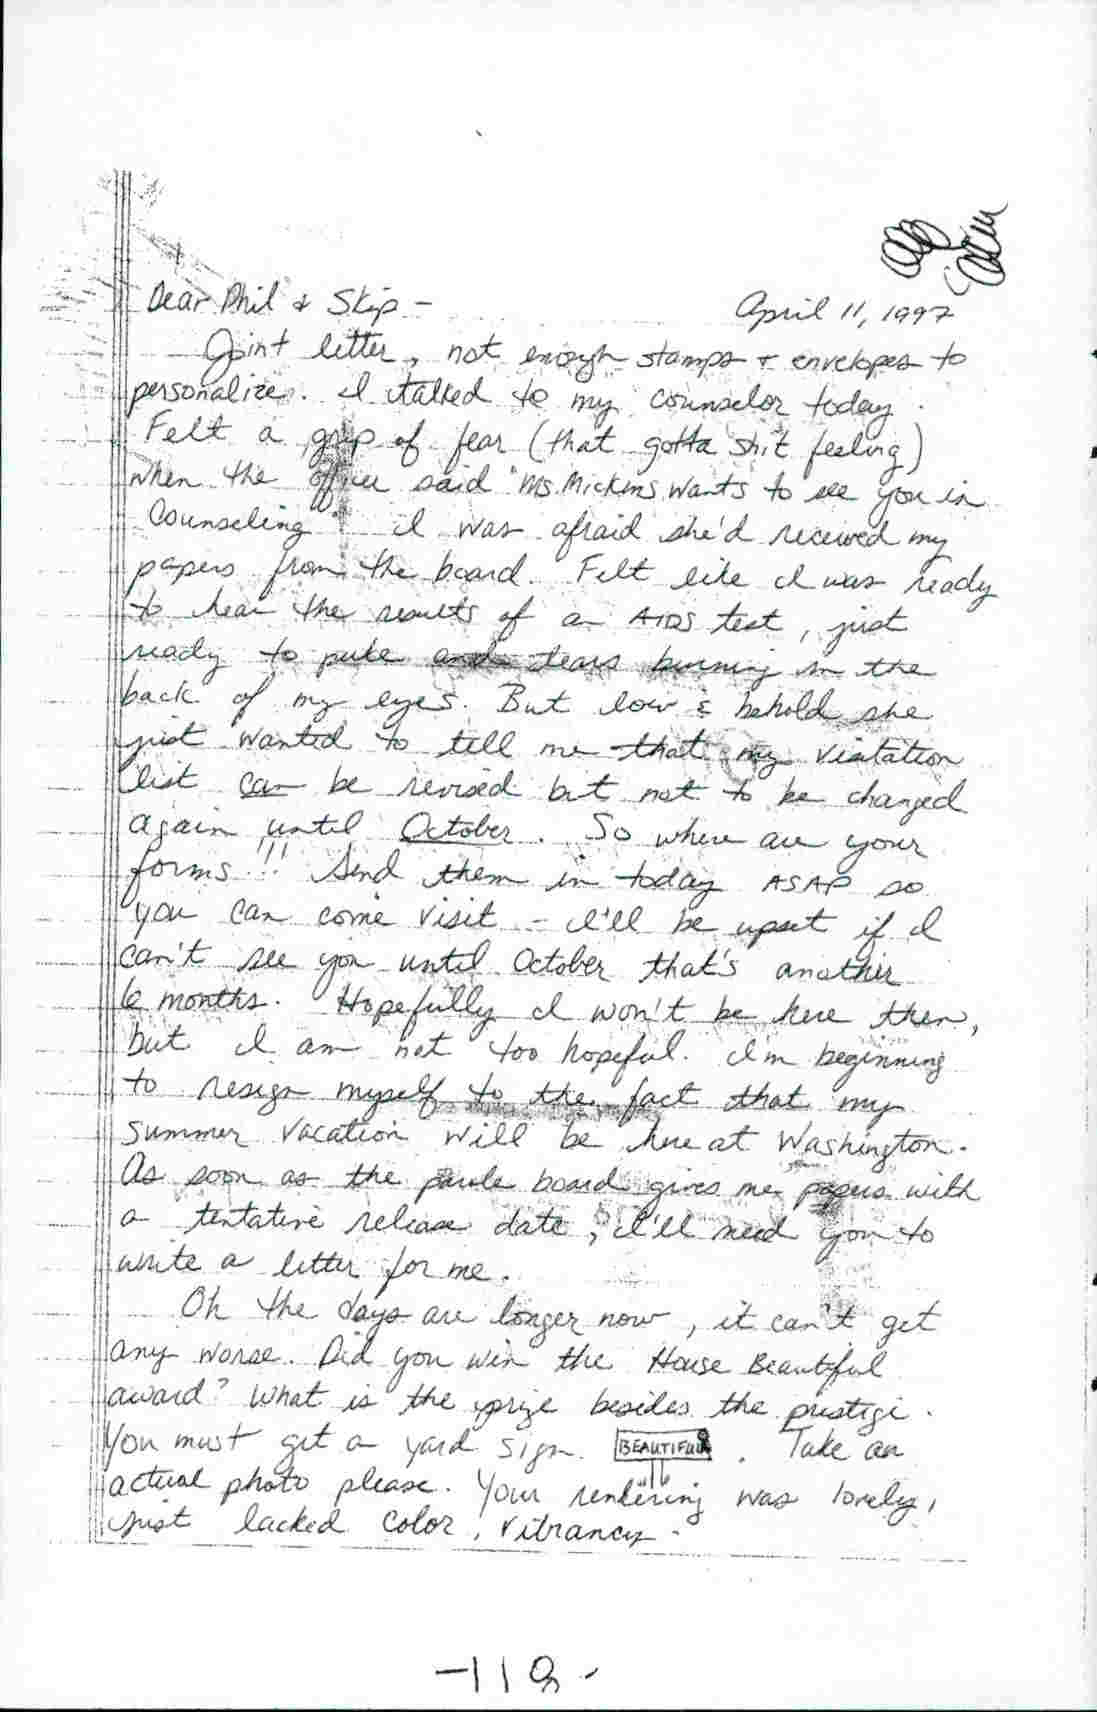 Dear Phil & Skip - April 11, 1997
Joint letter, not enough stamps + envelopes to
personalize. I talked to my counselor today.
Felt a grip of fear (that gotta shit feeling)
when the officer said "Ms. Mickens wants to see you in
Counseling" I was afraid she'd received my
papers from the board. Felt like I was ready
to hear the results of an AIDS test, just
ready to puke and tears burning in the
back of my eyes. But low & behold she
just wanted to tell me that my visitation
list can be revised but not to be changed
again until October. So where are your
forms!!! Send them in today ASAP so
you can come visit - I'll be upset if I
can't see you until October that's another
6 months. Hopefully I won't be here then,
but I am not too hopeful. I'm beginning
to resign myself to the fact that my
summer vacation will be here at Washington.
As soon as the parole board gives me papers with
a tentative release date, I'll need you to
write a letter for me.
Oh the days are longer now, it can't get
any worse. Did you win the House Beautiful
award? What is the prize besides the prestige.
You must get a yard sign. BEAUTIFUL. Take an
actual photo please. Your rendering was lovely,
just lacked color, vibrancy.
-118-